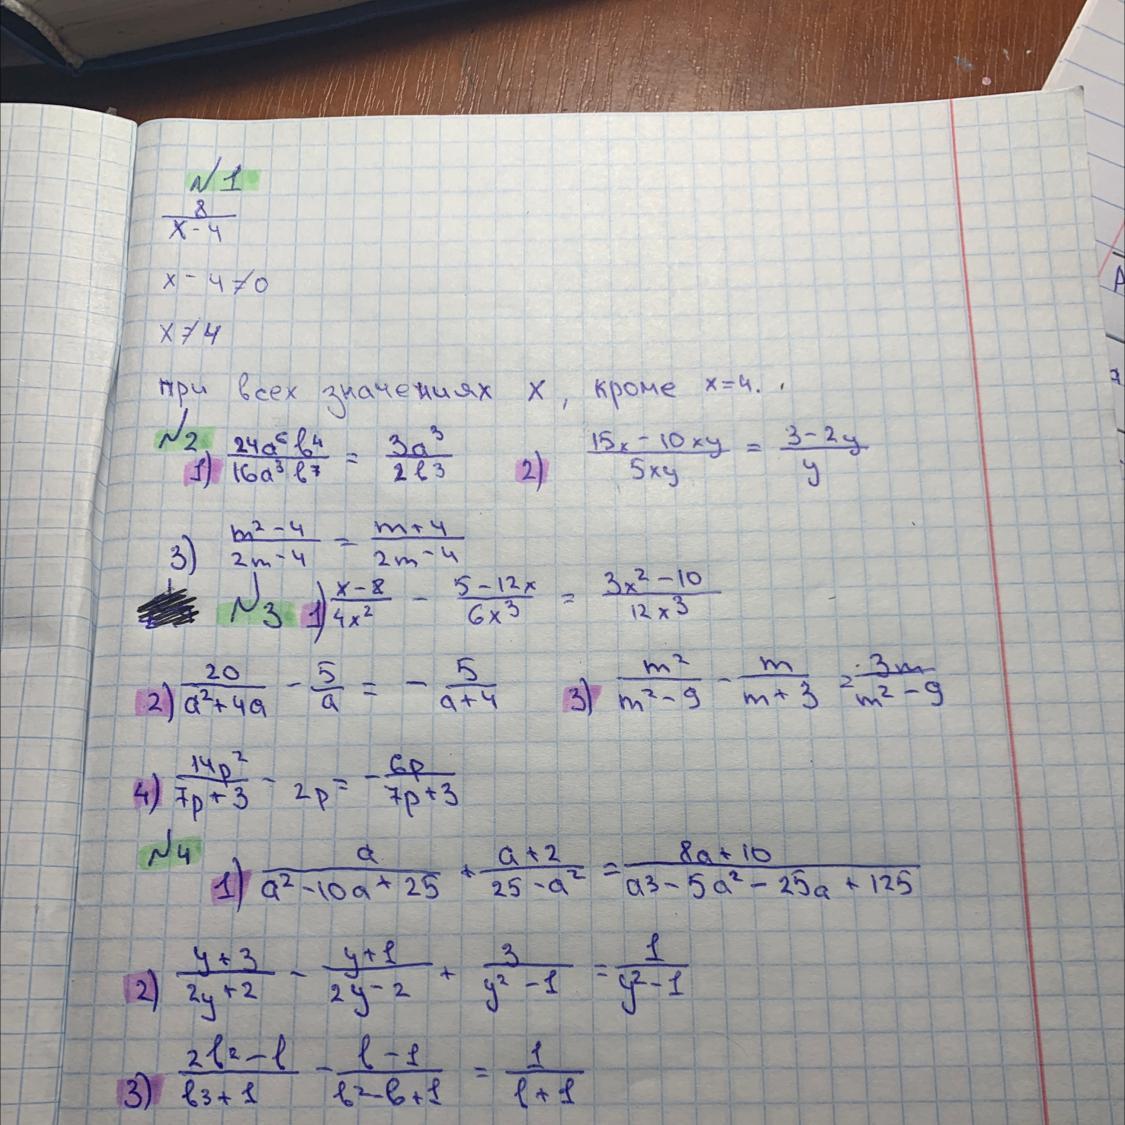 №1
8/(x-4)
x-4≠0
x≠4
при всех значениях x, кроме x=4.
№2 1) 24a⁶b⁴/16a³b⁷ = 3a³/2b³ 2) (15x-10xy)/5xy = (3-2y)/y
3) (m²-4)/(2m-4) = (m+4)/(2m-4)
№3 1) (x-8)/4x² - (5-12x)/6x³ = (3x²-10)/12x³
2) 20/(a²+4a) - 5/a = - 5/(a+4) 3) m²/(m²-9) - m/(m+3) = 3m/(m²-9)
4) 14p²/(7p+3) - 2p = - 6p/(7p+3)
№4 1) a/(a²-10a+25) + (a+2)/(25-a²) = (8a+10)/(a3-5a²-25a+125)
2) (y+3)/(2y+2) - (y+1)/(2y-2) + 3/(y²-1) = 1/(y²-1)
3) (2b²-b)/(b3+1) - (b-1)/(b²-b+1) = 1/(b+1)